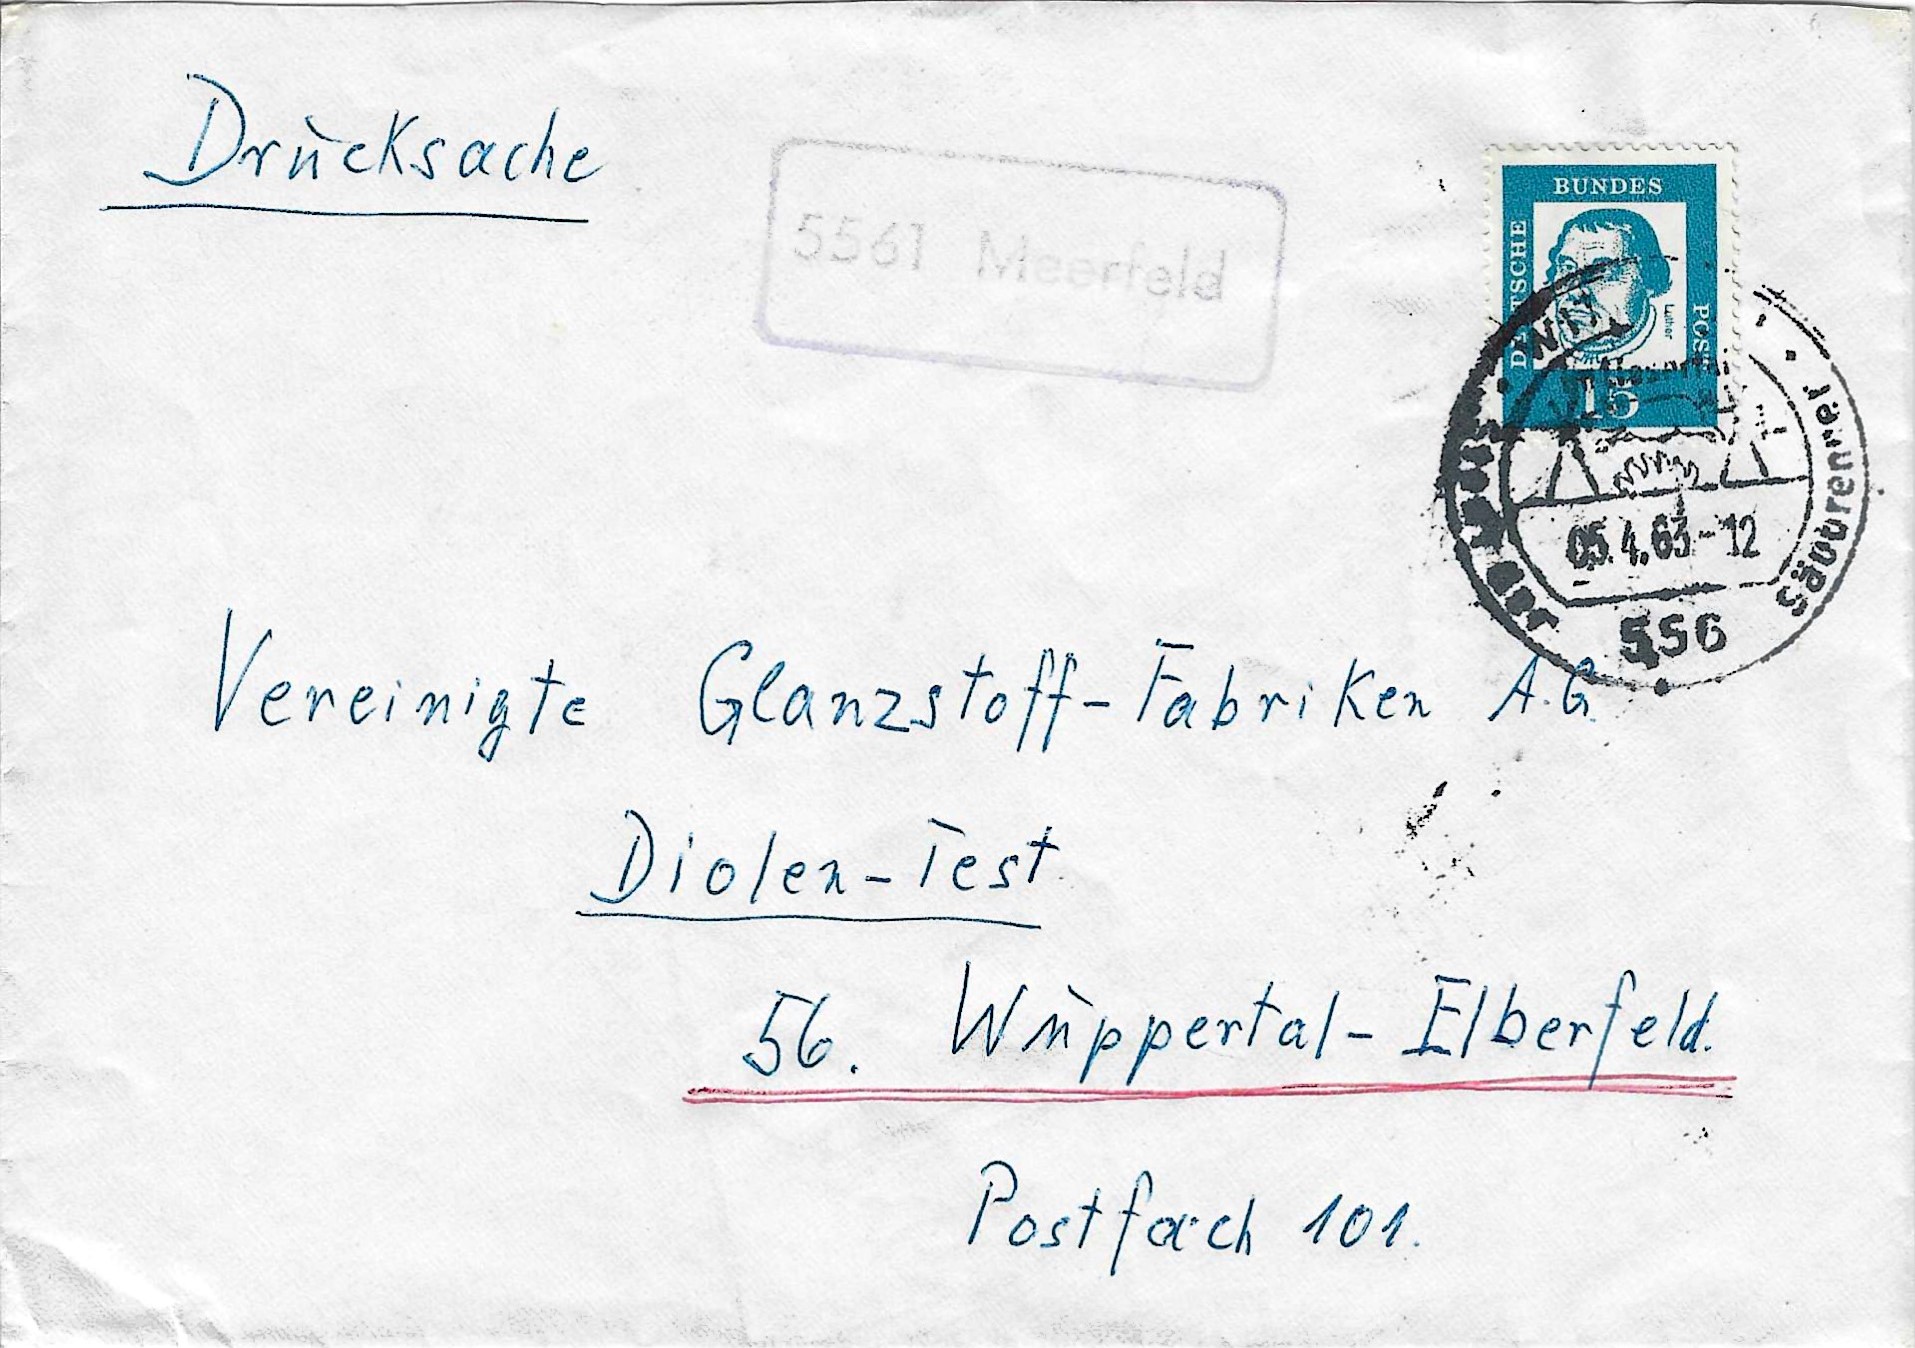 Drucksache
5561 Meerfeld
DEUTSCHE
BUNDES
POST
Luther
15
05.4.63-12
Säubrenner
556
Vereinigte Glanzstoff-Fabriken A.G.
Diolen-Test
56. Wuppertal-Elberfeld.
Postfach 101.